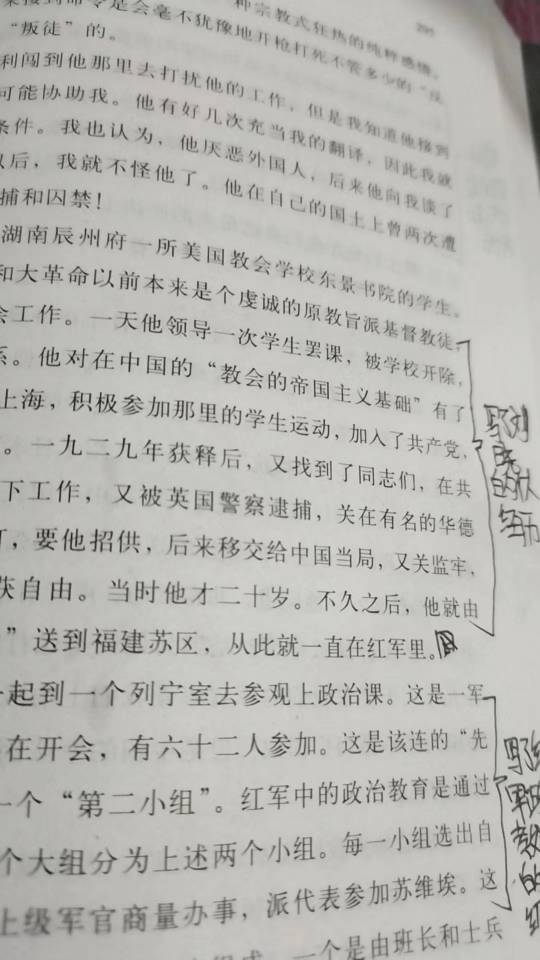 种宗教式狂热的纯粹感情。
295
命令是会毫不犹豫地开枪打死不管多少的“反
“叛徒”的。
利闯到他那里去打扰他的工作，但是我知道他接到
可能协助我。他有好几次充当我的翻译，因此我就
条件。我也认为，他厌恶外国人，后来他向我谈了
以后，我就不怪他了。他在自己的国土上曾两次遭
捕和囚禁！
湖南辰州府一所美国教会学校东景书院的学生。
和大革命以前本来是个虔诚的原教旨派基督教徒，
会工作。一天他领导一次学生罢课，被学校开除，
系。他对在中国的“教会的帝国主义基础”有了
上海，积极参加那里的学生运动，加入了共产党，
。一九二九年获释后，又找到了同志们，在共
下工作，又被英国警察逮捕，关在有名的华德
打，要他招供，后来移交给中国当局，又关监牢，
获自由。当时他才二十岁。不久之后，他就由
”送到福建苏区，从此就一直在红军里。
一起到一个列宁室去参观上政治课。这是一军
在开会，有六十二人参加。这是该连的“先
一个“第二小组”。红军中的政治教育是通过
个大组分为上述两个小组。每一小组选出自
上级军官商量办事，派代表参加苏维埃。这
一个是由班长和士兵